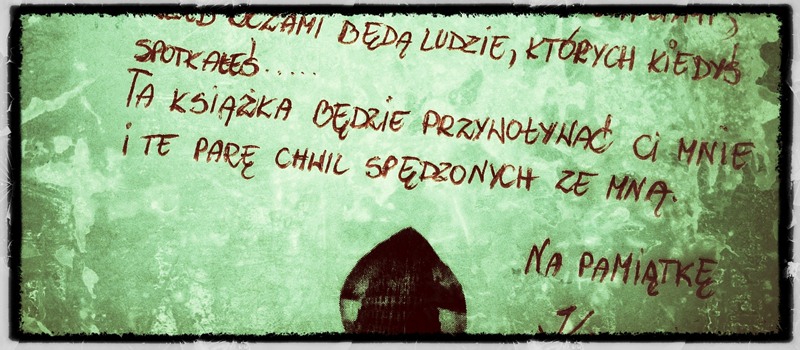 OCZAMI BĘDĄ LUDZIE, KTÓRYCH KIEDYŚ
SPOTKAŁEŚ.....
TA KSIĄŻKA BĘDZIE PRZYWOŁYWAĆ CI MNIE
I TE PARĘ CHWIL SPĘDZONYCH ZE MNĄ.
NA PAMIĄTKĘ